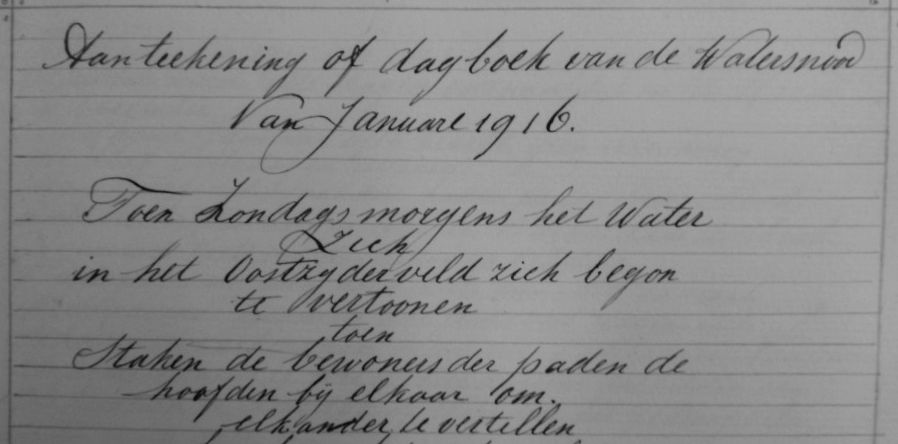 Aanteekening of dagboek van de Watersnood
Van Januari 1916.
Toen Zondagsmorgens het Water
zich
in het Oostzyderveld zich begon
te vertoonen
toen
Staken de bewoners der paden de
hoofden bij elkaar om.
elkander te vertellen